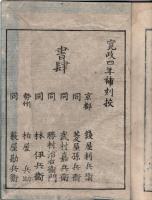 寛政四年補刻板
書肆
京都 錢屋利兵衛
同 菱屋孫兵衛
同 武村嘉兵衛
同 勝村治右衛門
同 林伊兵衛
勢州 柏屋兵助
同 藪屋勘兵衛